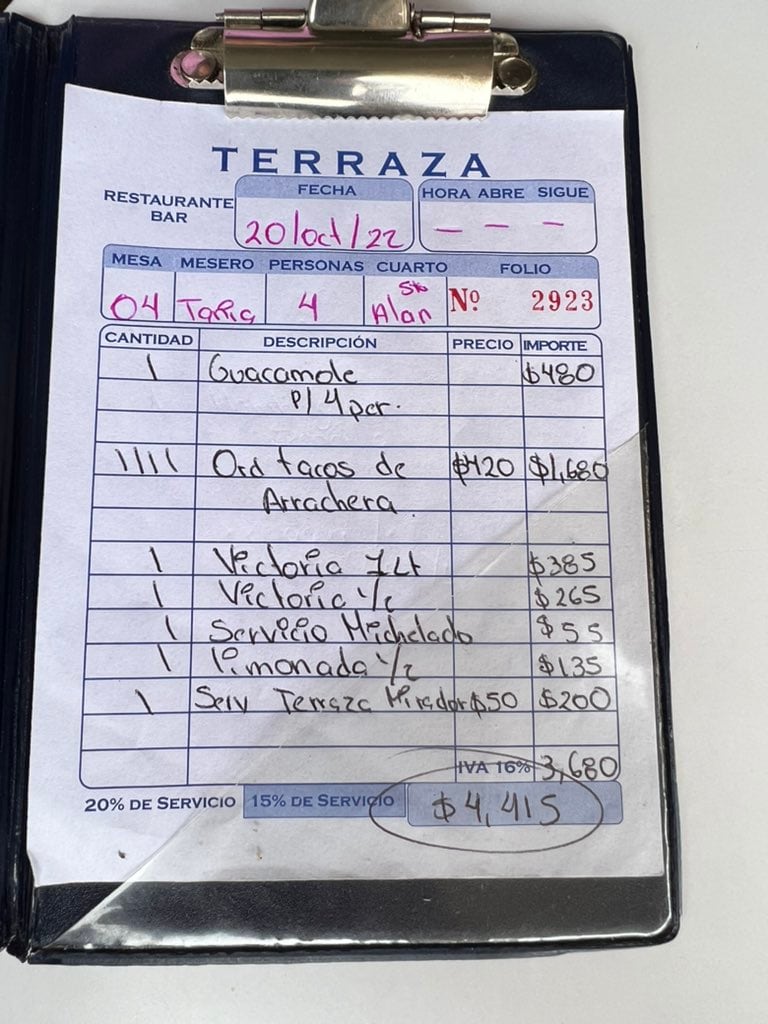 TERRAZA
RESTAURANTE BAR
FECHA
20/oct/22
HORA ABRE SIGUE
— — —
MESA MESERO PERSONAS CUARTO FOLIO
04 Tapia 4 Alan Nº 2923
CANTIDAD DESCRIPCIÓN PRECIO IMPORTE
1 Guacamole $480
P/ 4 per.
1111 Ord tacos de $420 $1,680
Arrachera
1 Victoria 1Lt $385
1 Victoria $265
1 Servicio Michelado $55
1 limonada 1/2 $135
1 Serv Terraza Mirador $50 $200
IVA 16% 3,680
20% DE SERVICIO 15% DE SERVICIO $4,415